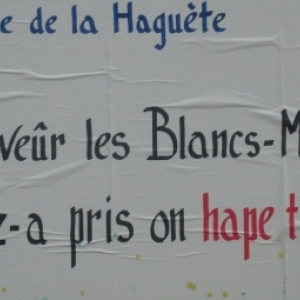 e de la Haguète
veûr les Blancs-M
z-a pris on hape t